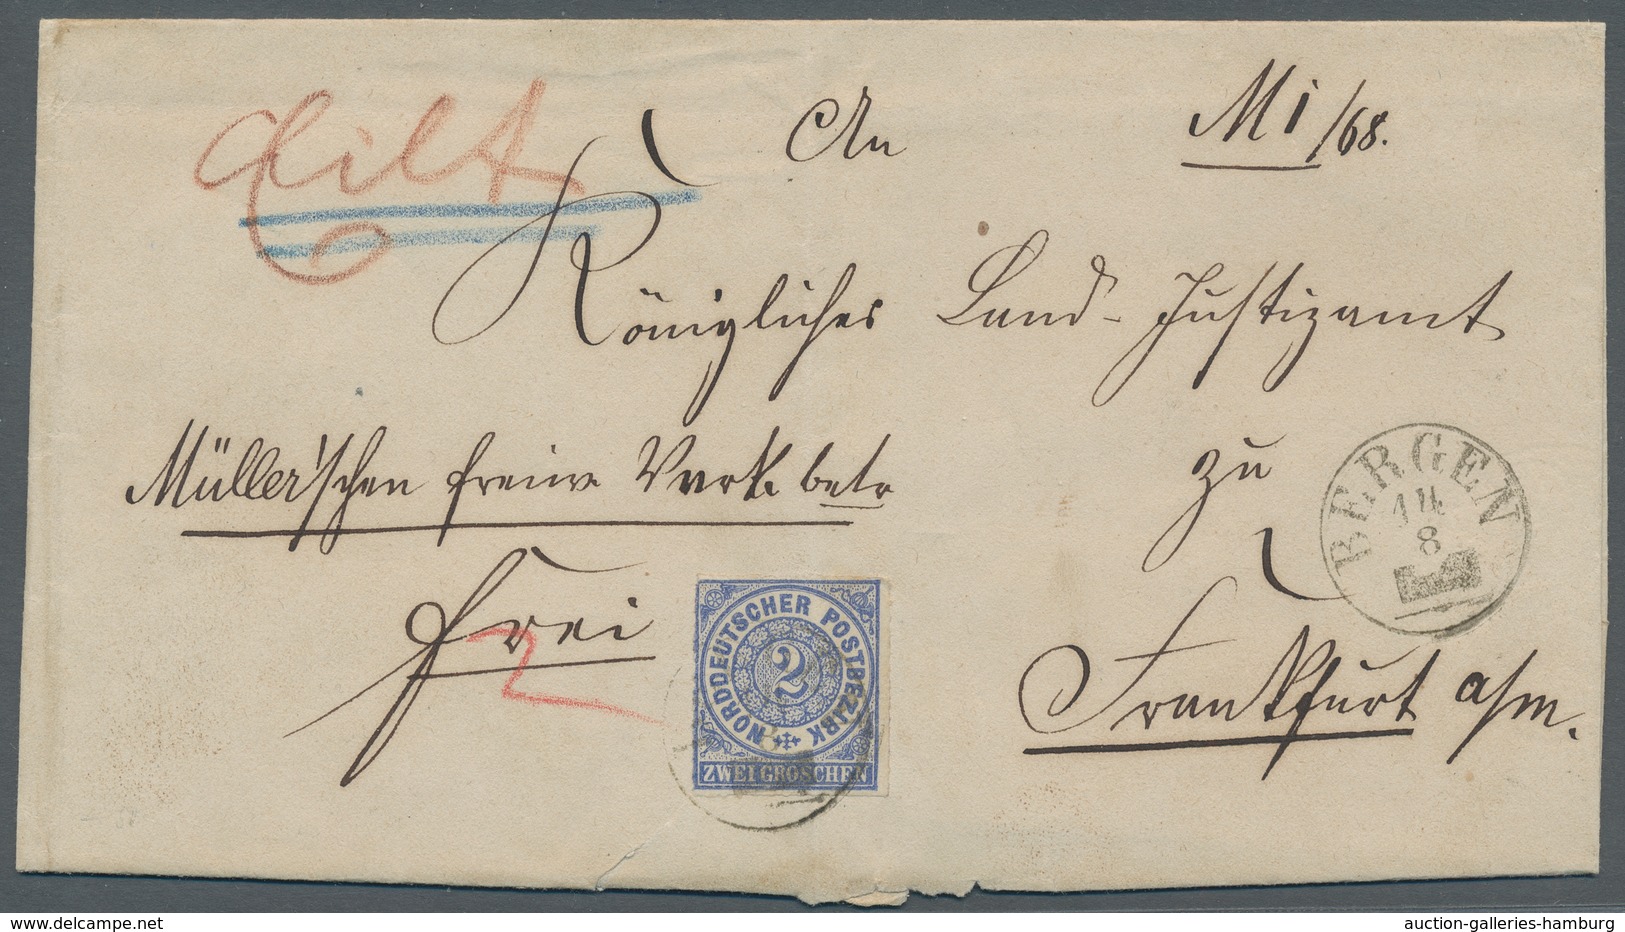 Eilt
An
M 1/68.
Königliches Land-Justizamt
Müller'schen freiw Verk. betr
zu
BERGEN
14
8
Frei
2
Frankfurt a/m.
NORDDEUTSCHER POSTBEZIRK
2
ZWEI GROSCHEN
delcampe.net
auction-galleries-hamburg